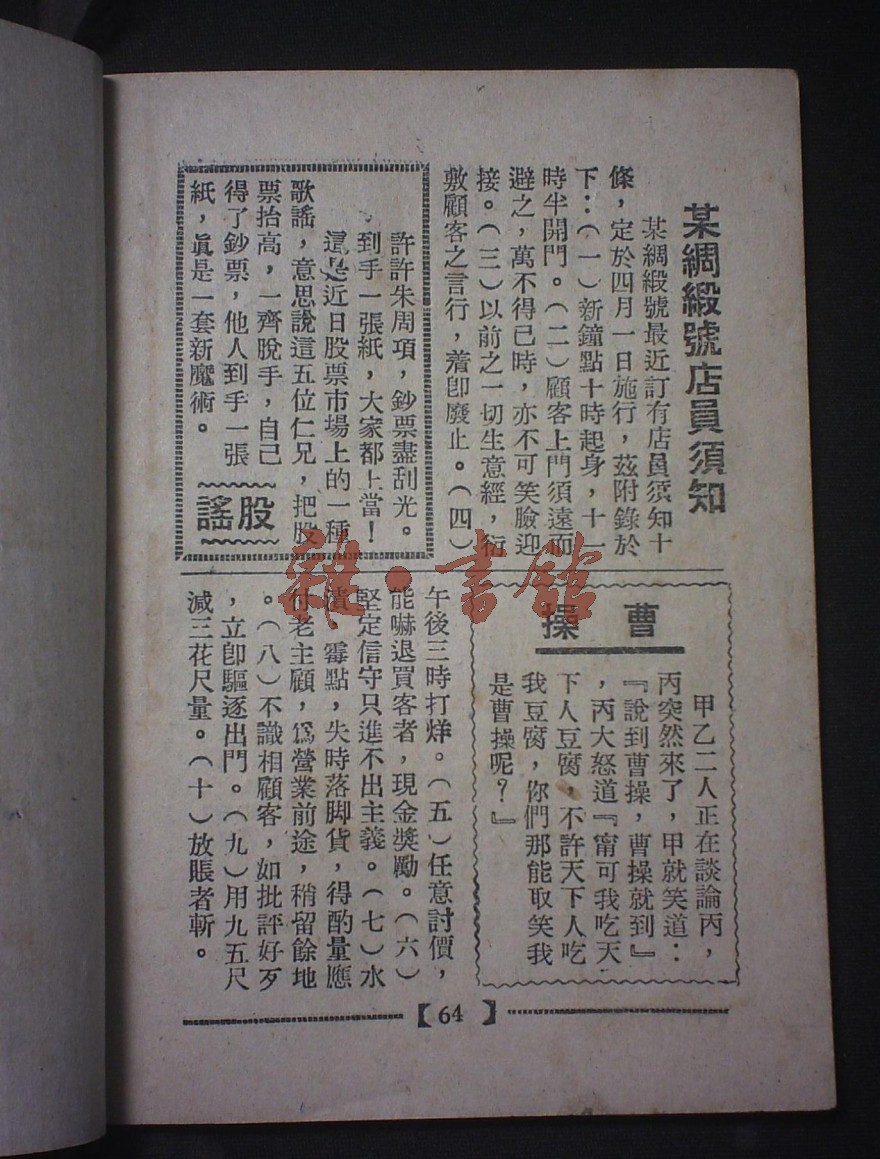 某綢緞號店員須知
某綢緞號最近訂有店員須知十
條，定於四月一日施行，茲附錄於
下：（一）新鐘點十時起身，十一
時半開門。（二）顧客上門須遠而
避之，萬不得已時，亦不可笑臉迎
接。（三）以前之一切生意經，衍
敷顧客之言行，着卽廢止。（四）
午後三時打烊。（五）任意討價，
能嚇退買客者，現金獎勵。（六）
堅定信守只進不出主義。（七）水
漬 霉點，失時落脚貨，得酌量應
付老主顧，爲營業前途，稍留餘地
。（八）不識相顧客，如批評好歹
，立卽驅逐出門。（九）用九五尺
減三花尺量。（十）放賬者斬。
股謠
許許朱周項，鈔票盡刮光。
到手一張紙，大家都上當！
這是近日股票市場上的一種
歌謠，意思說這五位仁兄，把股
票抬高，一齊脫手，自己
得了鈔票，他人到手一張
紙，眞是一套新魔術。
曹操
甲乙二人正在談論丙，
丙突然來了，甲就笑道：
『說到曹操，曹操就到』
，丙大怒道『甯可我吃天
下人豆腐，不許天下人吃
我豆腐，你們那能取笑我
是曹操呢？』
【64】
雜·書館